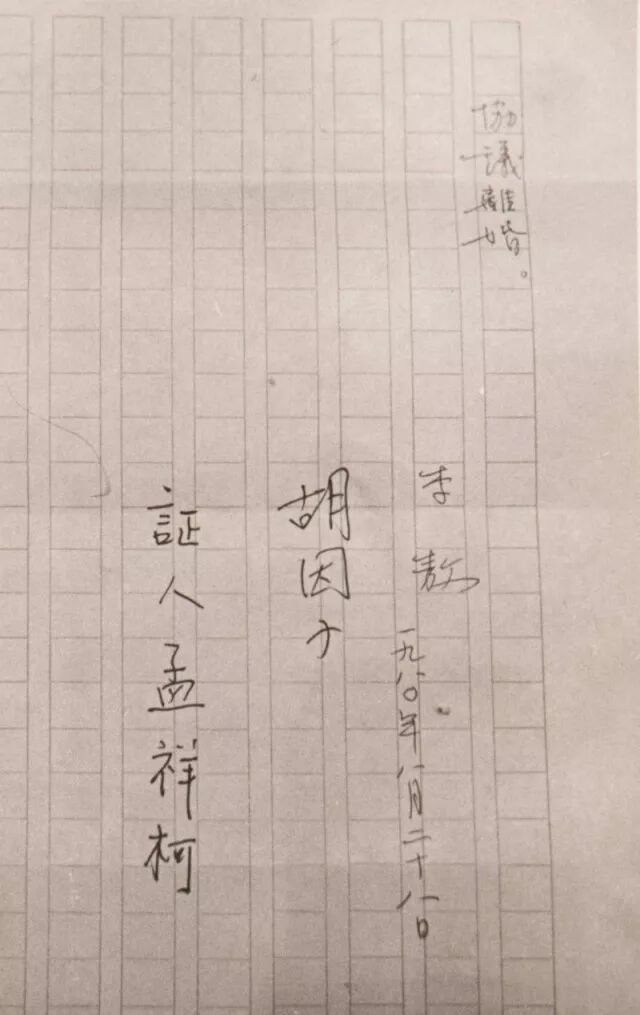 協議離婚。
李敖
一九八〇年八月二十八日
胡因子
証人孟祥柯